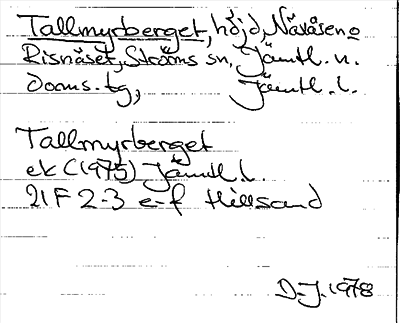 Tallmyrberget, höjd, Näsåsen o
Risnäset, Ströms sn, Jämtl. n.
doms. tg, Jämtl. l.
Tallmyrberget
ek C (1975) Jämtl l.
21 F 2-3 e-f Hillsand
D.J. 1978